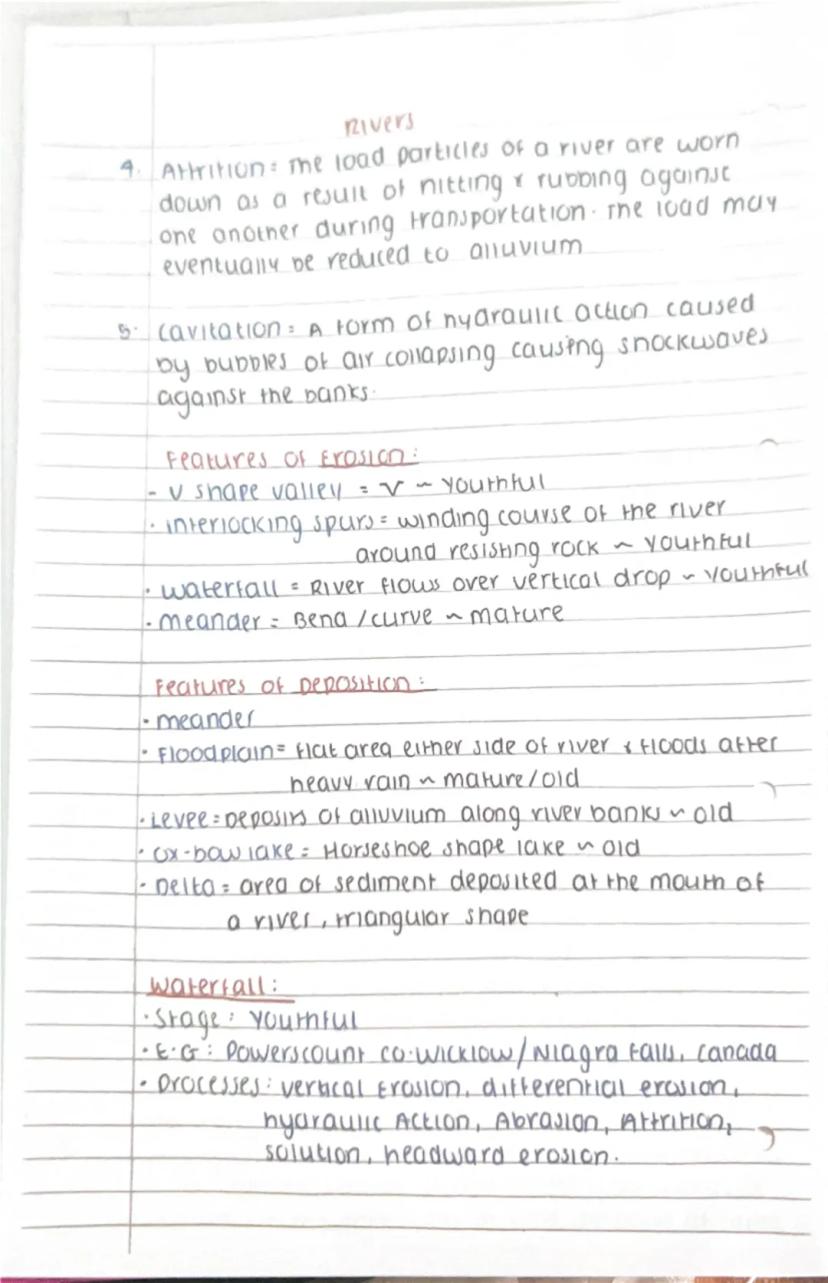 Rivers
4. Attrition: The load particles of a river are worn
down as a result of hitting & rubbing against
one another during transportation. The load may
eventually be reduced to alluvium
5. Cavitation: A form of hydraulic action caused
by bubbles of air collapsing causing shockwaves
against the banks.
Features of Erosion:
- V shape valley = V ~ Youthful
· interlocking spurs = winding course of the river
around resisting rock ~ Youthful
· waterfall = River flows over vertical drop ~ Youthful
· meander = Bend / curve ~ mature
Features of Deposition:
· meander
· Floodplain = flat area either side of river & floods after
heavy rain ~ mature/old
· Levee = Deposits of alluvium along river banks ~ old
· Ox-bow lake = Horseshoe shape lake ~ old
· Delta = area of sediment deposited at the mouth of
a river, triangular shape
Waterfall:
· Stage: Youthful
· E.G: Powerscount co. Wicklow/Niagra Falls, Canada
· Processes: vertical Erosion, differential erosion,
hydraulic Action, Abrasion, Attrition,
solution, headward erosion.